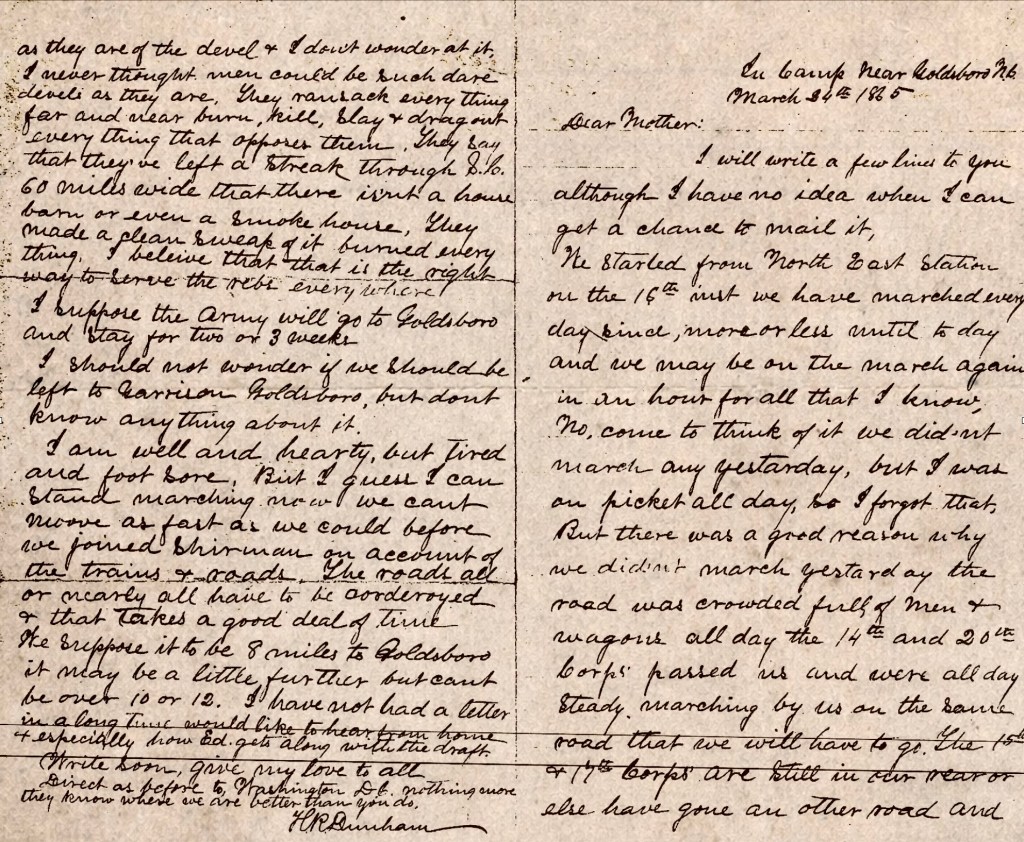 In Camp Near Goldsboro N.C.
March 24th 1865
Dear Mother:
I will write a few lines to you
although I have no idea when I can
get a chance to mail it,
We started from North East Station
on the 16th inst we have marched every
day since, more or less until to day
and we may be on the march again
in an hour for all that I know,
No, come to think of it we did-nt
march any yestarday, but I was
on picket all day, so I forgot that,
But there was a good reason why
we did'nt march yestarday the
road was crowded full of Men &
wagons all day the 14th and 20th
Corps passed us and were all day
steady marching by us on the same
road that we will have to go. The 15th
& 17th Corps are still in our rear or
else have gone an other road and
as they are of the devel & I dont wonder at it,
I never thought men could be such dare
devels as they are, They ransack every thing
far and near burn, kill, slay & drag out
every thing that opposes them, They say
that they've left a streak through S.C.
60 miles wide that there isnt a house
barn or even a smoke house, They
made a clean sweap of it burned every
thing. I beleive that that is the right
way to serve the rebs every where
I suppose the Army will go to Goldsboro
and stay for two or 3 weeks
I should not wonder if we should be
left to Garrison Goldsboro, but dont
know anything about it.
I am well and hearty, but Tired
and foot sore, But I guess I can
stand marching now we cant
moove as fast as we could before
we joined Shirman on account of
the trains & roads. The roads all
or nearly all have to be corderoyed
& that takes a good deal of time
We suppose it to be 8 miles to Goldsboro
it may be a little further but cant
be over 10 or 12. I have not had a letter
in a long time would like to hear from home
& especially how Ed. gets along with the draft.
Write soon, give my love to all
Direct as before to, Washington D.C. nothing more
they know where we are better than you do.
H R Dunham